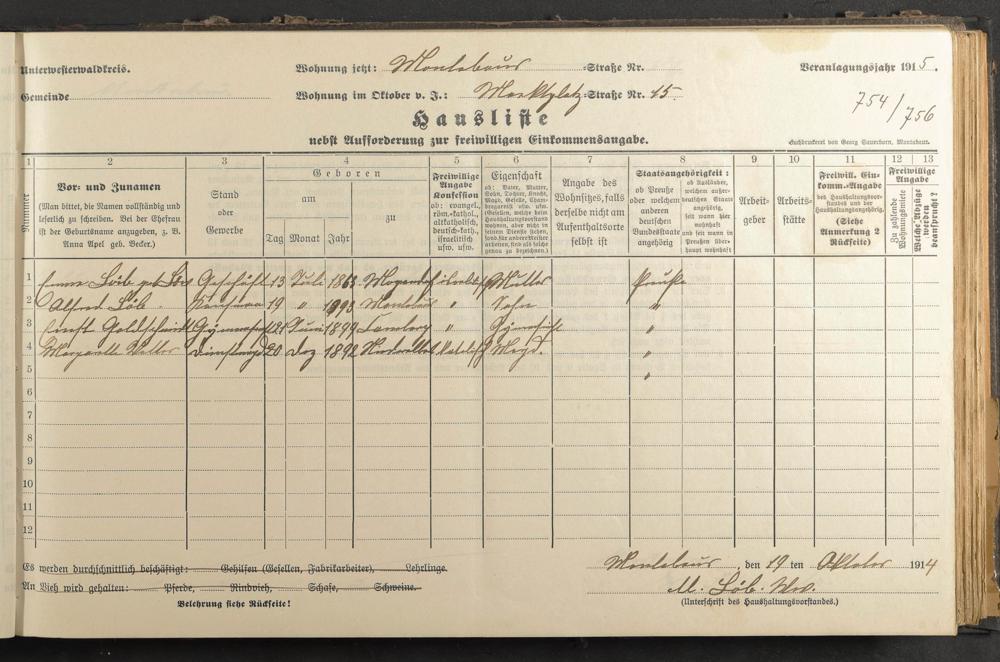 Unterwesterwaldkreis.
Wohnung jetzt: Montabaur Straße Nr.
Veranlagungsjahr 1915.
Gemeinde
Wohnung im Oktober v. J.: Marktplatz Straße Nr. 15
754/756
Hausliste
nebst Aufforderung zur freiwilligen Einkommensangabe.
Buchdruckerei von Georg Sauerborn, Montabaur.
1 2 3 4 5 6 7 8 9 10 11 12 13
Nummer
Vor- und Zunamen
(Man bittet, die Namen vollständig und
leserlich zu schreiben. Bei der Ehefrau
ist der Geburtsname anzugeben, z. B.
Anna Apel geb. Becker.)
Stand
oder
Gewerbe
Geboren
am
Tag Monat Jahr
zu
Freiwillige
Angabe
Konfession
ob: evangel.
röm.-kathol.,
altkatholisch,
deutsch-kath.,
israelitisch
usw. usw.
Eigenschaft
ob: Vater, Mutter,
Sohn, Tochter, Knecht,
Magd, Geselle, Cham-
bregarnist usw. usw.
(Gesellen, welche beim
Haushaltungsvorstand
wohnen, aber nicht in
seinem Dienste stehen,
sind als solche
genau zu bezeichnen.)
Angabe des
Wohnsitzes, falls
derselbe nicht am
Aufenthaltsorte
selbst ist
Staatsangehörigkeit:
ob Preuße
oder welchem
anderen
deutschen
Bundesstaate
angehörig
ob Ausländer,
welchem außer-
deutschen Staate
angehörig,
seit wann hier
wohnhaft
und seit wann in
Preußen über-
haupt wohnhaft
Arbeit-
geber
Arbeits-
stätte
Freiwill. Ein-
komm.-Angabe
des Haushaltungsvor-
standes und der
Haushaltungsangehörig.
(Siehe
Anmerkung 2
Rückseite)
Freiwillige
Angabe
Zu zahlende
Wohnungsmiete
Welche Abzüge
werden
beansprucht?
1 Löb geb. Geschäft 13 Juli 1863 Mutter Preuße
2 Alfred Löb Kaufmann 19 " 1893 Montabaur " Sohn "
3 Ernst Goldschmidt 21 Juni 1899 Limburg " "
4 Margarethe 20 Dez 1892 Magd. "
5 "
6
7
8
9
10
11
12
Es werden durchschnittlich beschäftigt: Gehilfen (Gesellen, Fabrikarbeiter), Lehrlinge.
An Vieh wird gehalten: Pferde, Rindvieh, Schafe, Schweine.
Belehrung siehe Rückseite!
Montabaur, den 19 ten Oktober 1914
M. Löb. Ww.
(Unterschrift des Haushaltungsvorstandes.)